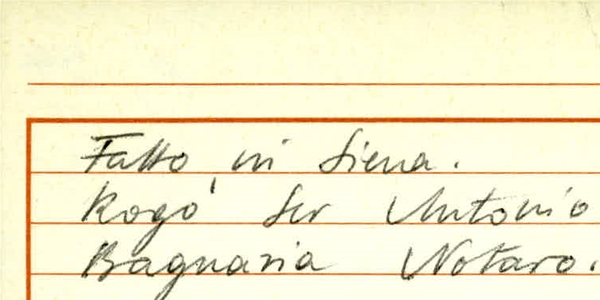 Fatto in Siena.
Rogò Ser Antonio
Bagnaria Notaro.